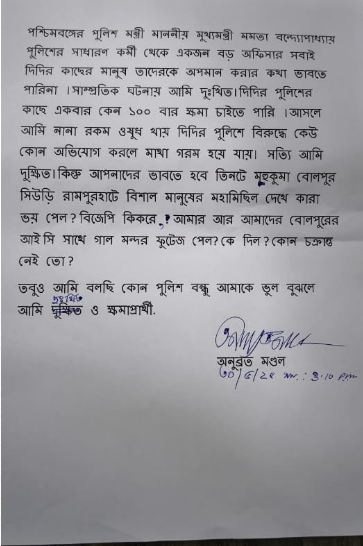 পশ্চিমবঙ্গের পুলিশ মন্ত্রী মাননীয় মুখ্যমন্ত্রী মমতা বন্দ্যোপাধ্যায়
পুলিশের সাধারণ কর্মী থেকে একজন বড় অফিসার সবাই
দিদির কাছের মানুষ তাদেরকে অপমান করার কথা ভাবতে
পারিনা ।সাম্প্রতিক ঘটনায় আমি দুঃখিত।দিদির পুলিশের
কাছে একবার কেন ১০০ বার ক্ষমা চাইতে পারি ।আসলে
আমি নানা রকম ওষুধ খায় দিদির পুলিশে বিরুদ্ধে কেউ
কোন অভিযোগ করলে মাথা গরম হয়ে যায়। সত্যি আমি
দুঃখিত।কিন্তু আপনাদের ভাবতে হবে তিনটে মহুকুমা বোলপুর
সিউড়ি রামপুরহাটে বিশাল মানুষের মহামিছিল দেখে কারা
ভয় পেল? বিজেপি কিকরে,? আমার আর আমাদের বোলপুরের
আই সি সাথে গাল মন্দর ফুটেজ পেল?কে দিল?কোন চক্রান্ত
নেই তো?
তবুও আমি বলছি কোন পুলিশ বন্ধু আমাকে ভুল বুঝলে
আমি দুঃখিত ও ক্ষমাপ্রার্থী.
অনুব্রত মণ্ডল
৩০/৫/২৫